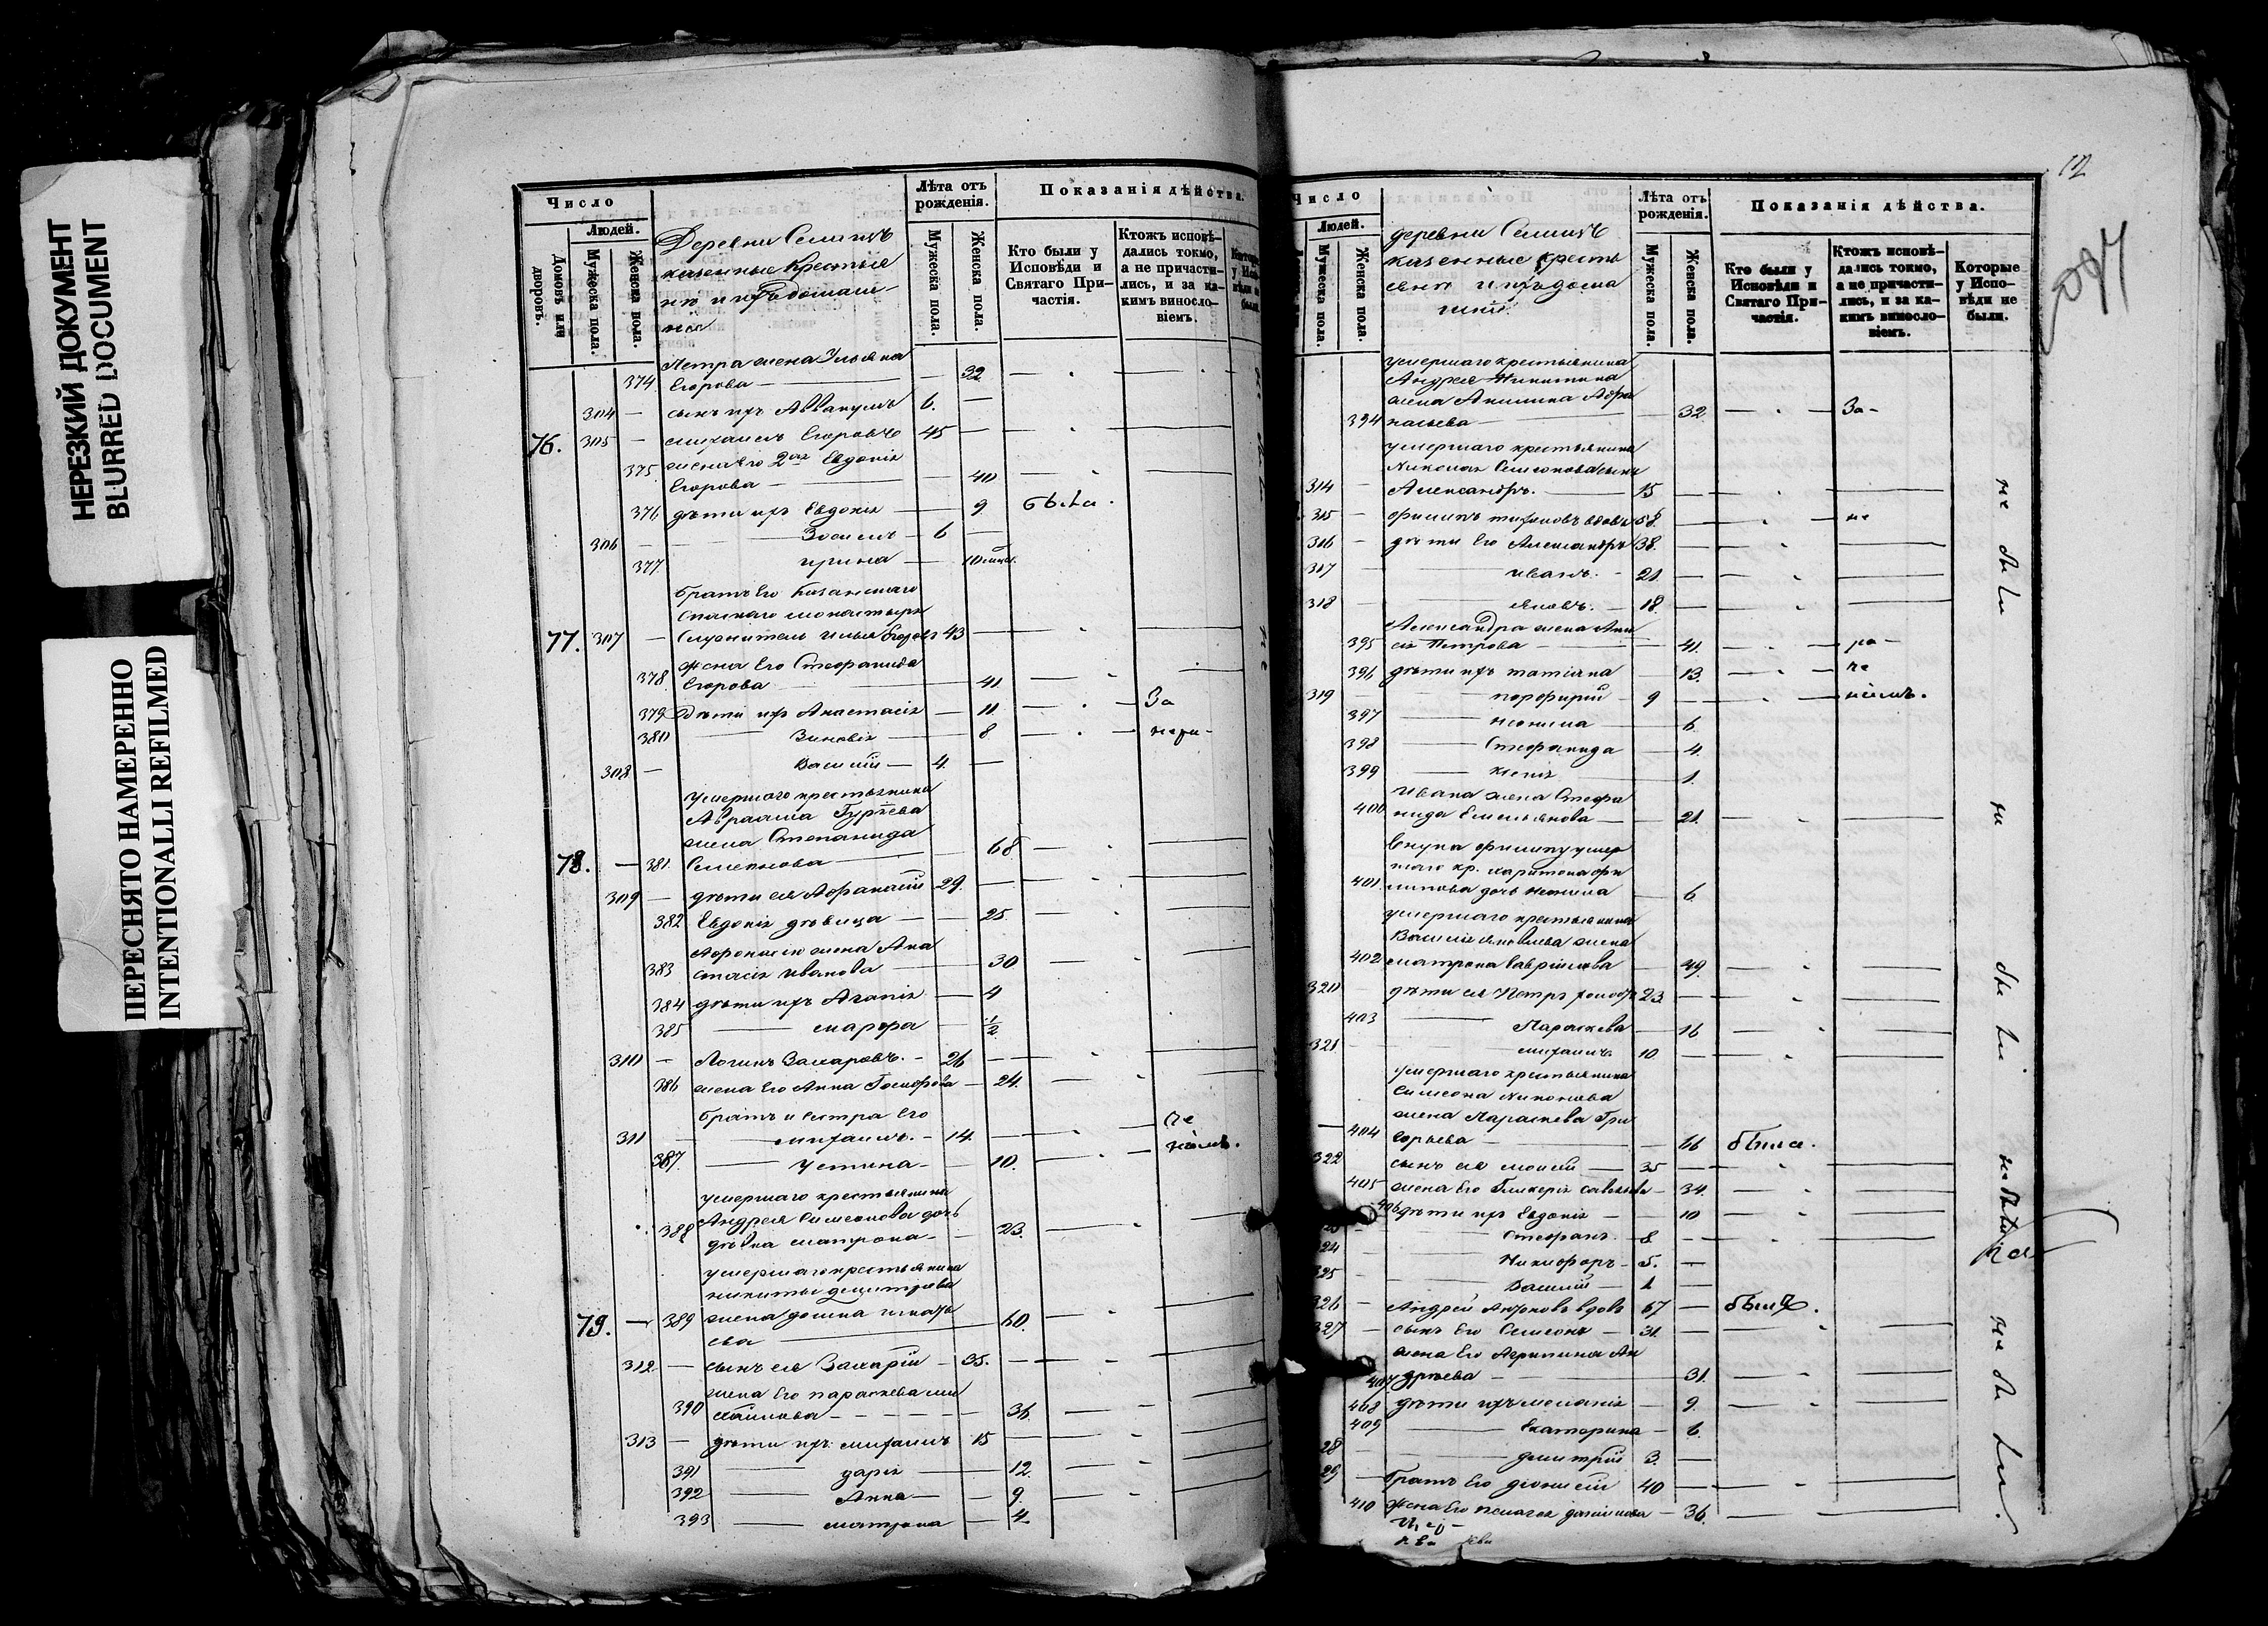 НЕРЕЗКИЙ ДОКУМЕНТ
BLURRED DOCUMENT
ПЕРЕСНЯТО НАМЕРЕННО
INTENTIONALLI REFILMED
Число
Людей.
Домовъ или дворовъ.
Мужеска пола.
Женска пола.
Деревни
казенные крестья
не и ихъ домаш-
ніе
Лѣта отъ рожденія.
Мужеска пола.
Женска пола.
Показанія дѣйства.
Кто были у Исповѣди и Святаго Причастія.
Ктожъ исповѣдались токмо, а не причастились, и за какимъ винословіемъ.
374 Петра жена Ульяна
Егорова — 32
304 — сынъ ихъ Аввакумъ 6. —
76. 305 — Михаилъ Егоровъ 45 —
375 жена его 2ая Евдокія
Егорова — 40
376 дѣти ихъ Евдокія — 9 была
306 — Зосимъ — 6 —
377 Ирина — 10 мѣс.
братъ его Казанскаго
Спаскаго монастыря
77. 307 — служитель Илья Егоровъ 43
378. жена его Стефанида
Егорова — 41
379 дѣти ихъ Анастасія — 11. За
380 Зиновія — 8
308 — Василій — 4. —
умершаго крестьянина
Авраама Гурьева
жена Степанида
78. — 381. Семенова — 68
309 — дѣти ея Афанасій 29. —
382 Евдокія дѣвица — 25.
Афонасію жена Ана
383 стасія Иванова — 30
384 дѣти ихъ Агапія — 4
385 — Марфа — 1/2
310 — Логинъ Захаровъ. — 26
386 жена его Анна — 24.
братъ и сестра его
311 — Михаилъ. — 14.
387. — Устина — 10.
умершаго крестьянина
Андрея Симеонова дочь
388 дѣвка Матрона — 23.
умершаго крестьянина
Никиты Димитріева
79. — 389 жена Домна Игнать
ева — 60.
312 — сынъ ея Захарій — 35. —
жена его Параскева Ми
390 хайлова — 36.
313 — дѣти ихъ Михаилъ 15
391 — Дарія — 12.
392 — Анна — 9.
393 — Матрона — 4.
12
Число
Людей.
Мужеска пола.
Женска пола.
деревни
казенные кресть
яне и ихъ дома
шніе
Лѣта отъ рожденія.
Мужеска пола.
Женска пола.
Показанія дѣйства.
Кто были у Исповѣди и Святаго Причастія.
Ктожъ исповѣдались токмо, а не причастились, и за какимъ винословіемъ.
Которые у Исповѣди не были.
умершаго крестьянина
Андрея Никитина
жена Акилина Афа
394 насьева — 32. За-
умершаго крестьянина
Николая Симеонова сынъ
314 — Александръ. — 15 —
315 — Филипъ Тихоновъ вдовъ 58. не
316 — дѣти его Александръ 38. —
317 — Иванъ. — 21. —
318 — Яковъ. — 18. —
Александра жена Ани
395 сія Петрова — 41.
396 дѣти ихъ Татіана — 13.
319 — Порфирій — 9
397 — Неонила — 6
398 — Стефанида — 4.
399 — Ксенія — 1.
Ивана жена Стефа
400 нида Емельянова — 21.
внука Филипу умер
шаго кр. Харитона Фи
401. липова дочь Неонила — 6
умершаго крестьянина
Василія Яковлева жена
402 Матрона — 49.
320 — дѣти ея Петръ холостъ 23
403 — Параскева — 16
321 — Михаилъ 10. —
умершаго крестьянина
Симеона
жена Параскева Гри
404 горьева — 66 была.
322 сынъ ея Моисей — 35 —
405 жена его Гликерія — 34.
406 дѣти ихъ Евдокія — 10
Стефанъ. — 8. —
324 — Никифоръ — 5. —
325 — Василій — 1 —
326 — Андрей вдовъ 67 — былъ.
327 — сынъ его Симеонъ — 31. —
жена его Агрипина Ан
407 дреева — 31.
408 дѣти ихъ Меланія — 9.
409 — Екатерина — 6.
28 — Димитрій 3. —
29 — братъ его Діонисій 40 —
410 жена его Пелагея — 36.
не были
не были